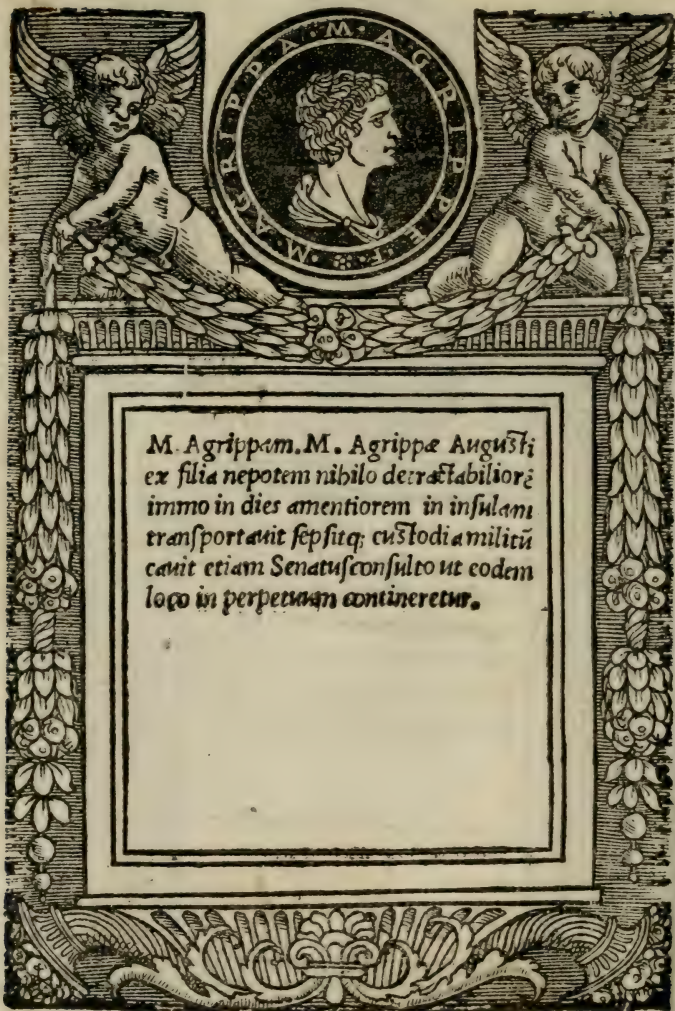 M·AGRIPPA·M·AGRIPPE·F·
M. Agrippam. M. Agrippæ Augusti
ex filia nepotem nihilo detractabiliorē
immo in dies amentiorem in inſulam
tranſportauit ſepſitq; cuſtodia militū
cauit etiam Senatuſconſulto ut eodem
loco in perpetuum contineretur.